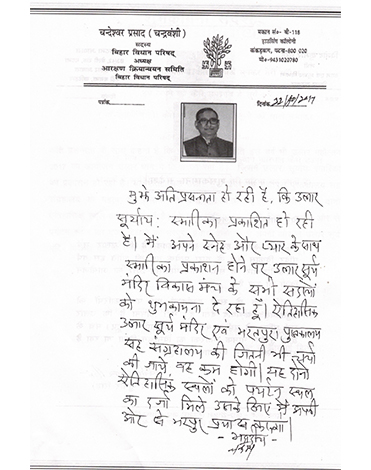 चन्देश्वर प्रसाद (चन्द्रवंशी)
सदस्य
बिहार विधान परिषद्
अध्यक्ष
आरक्षण क्रियान्वयन समिति
बिहार विधान परिषद्
मकान सं०- बी-118
हाउसिंग कॉलोनी
कंकड़बाग, पटना-800 020
मो०-9431020780
पत्रांक
दिनांक 22/10/2017
मुझे अति प्रसन्नता हो रही है, कि उलार
सूर्याय: स्मारिका प्रकाशित हो रही
है। मैं अपने स्नेह और प्यार के साथ
स्मारिका प्रकाशन होने पर उलार सूर्य
मंदिर विकास मंच के सभी सदस्यों
को शुभकामना दे रहा हूँ। ऐतिहासिक
उलार सूर्य मंदिर एवं भरतपुरा पुस्तकालय
सह संग्रहालय की जितनी भी चर्चा
की जाये वह कम होगी। यह दोनों
ऐतिहासिक स्थलों को पर्यटन स्थल
का दर्जा मिले इसके लिए मैं अपनी
ओर से भरपुर प्रयास करूंगा।